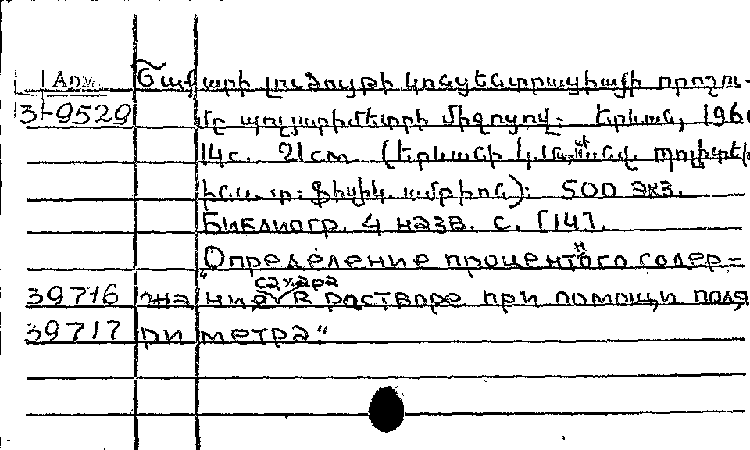 Арм. Շաքարի լուծույթի կոնցենտրացիայի որոշու-
3-9529 մը պոլյարիմետրի միջոցով: Երևան, 196
14с. 21см. (Երևանի Կ. Մարքսի անվ. պոլիտեխ
ինստ.: Ֆիզիկ. ամբիոն): 500 экз.
Библиогр. 4 назв. с. [14].
"Определение процентного содер=
39716 жания сахара в растворе при помощи поля
39717 риметра"